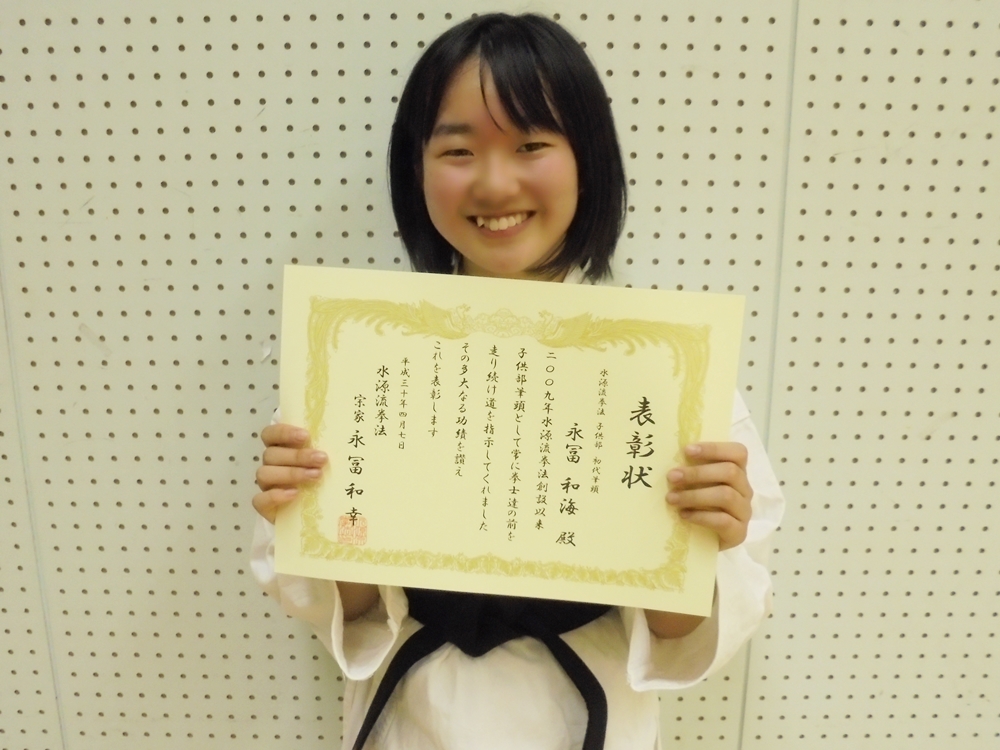 表彰状
水源流拳法 子供部 初代筆頭
永冨 和海 殿
二〇〇九年水源流拳法創設以来
子供部筆頭として常に拳士達の前を
走り続け道を指示してくれました
その多大なる功績を讃え
これを表彰します
平成三十年四月七日
水源流拳法
宗家 永冨 和幸